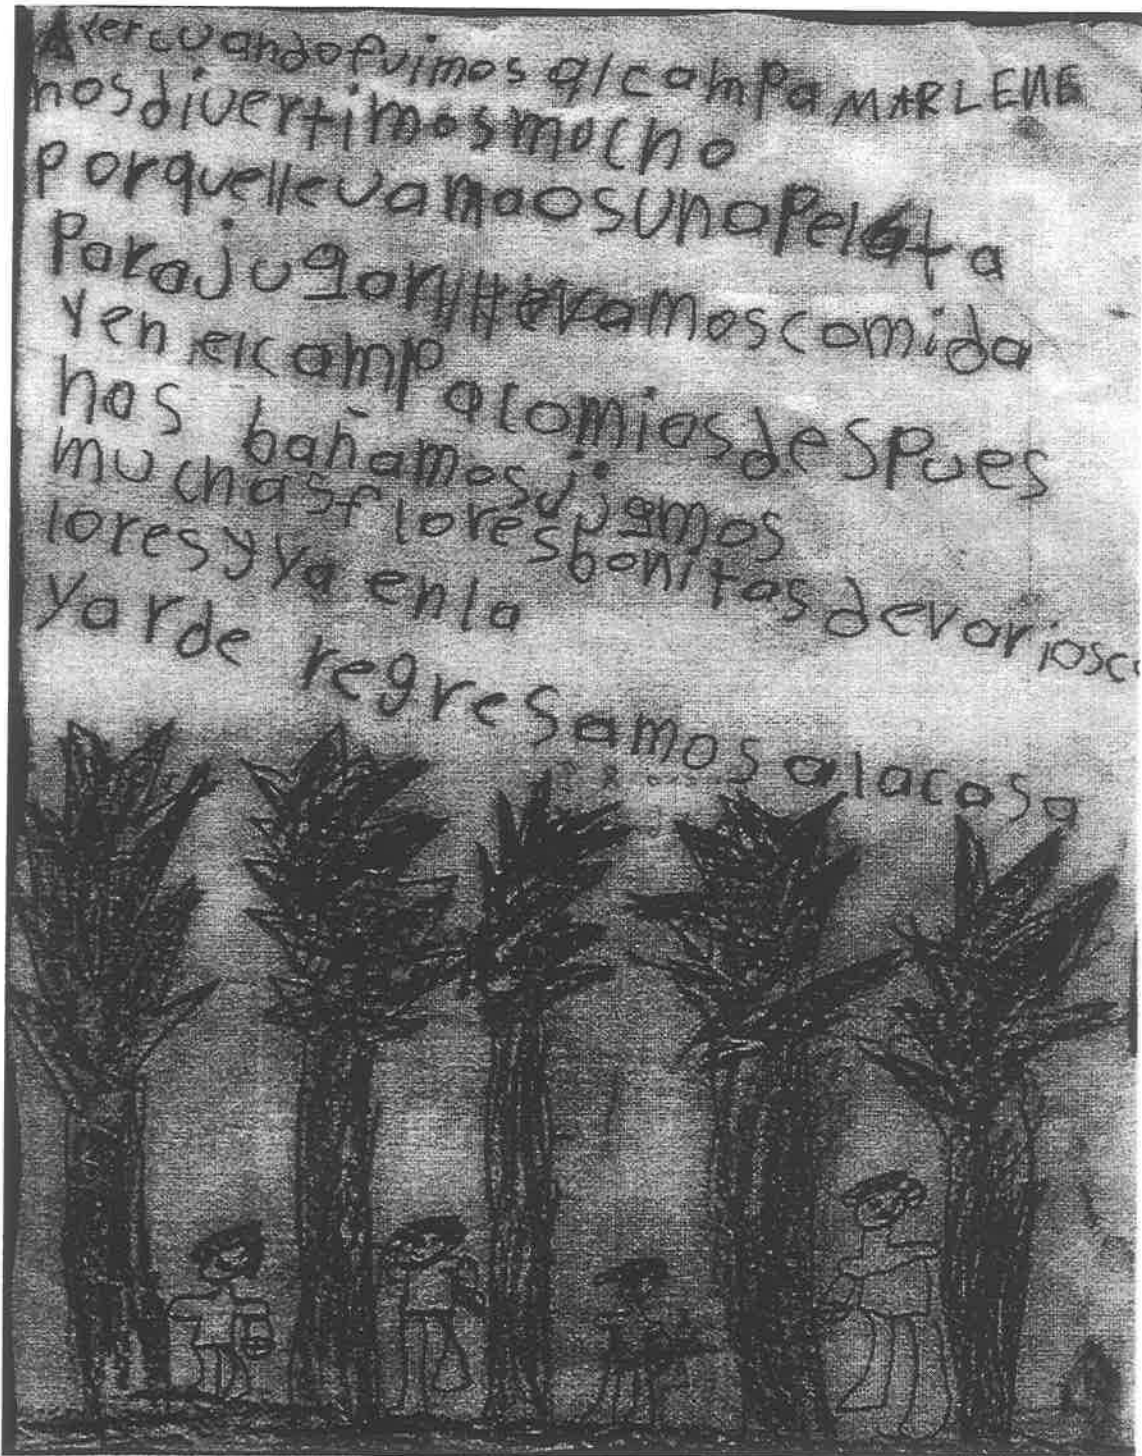 Ayer cuandofuimos alcampa MARLENE
nosdivertimosmucho
porquellevamaosunapelota
Parajugaryllevamoscomida
Yen elcampacomiosdespues
nos bañamosvijamos
muchasfloresbonitasdevariosco
loresyya enla
yarde regresamosalacasa